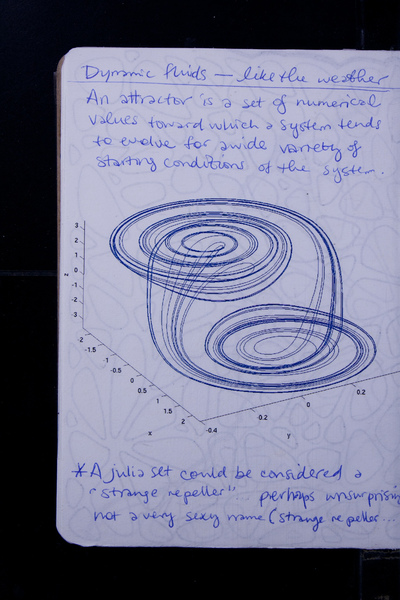 Dynamic fluids — like the weather
An attractor is a set of numerical
values toward which a system tends
to evolve for a wide variety of
starting conditions of the system.
3
2
1
0
-1
-2
-3
z
-2
-1.5
-1
-0.5
0
0.5
1
1.5
2
x
-0.4
-0.2
0
0.2
y
*A julia set could be considered a
"strange repeller"... perhaps unsurprising
not a very sexy name (strange repeller...